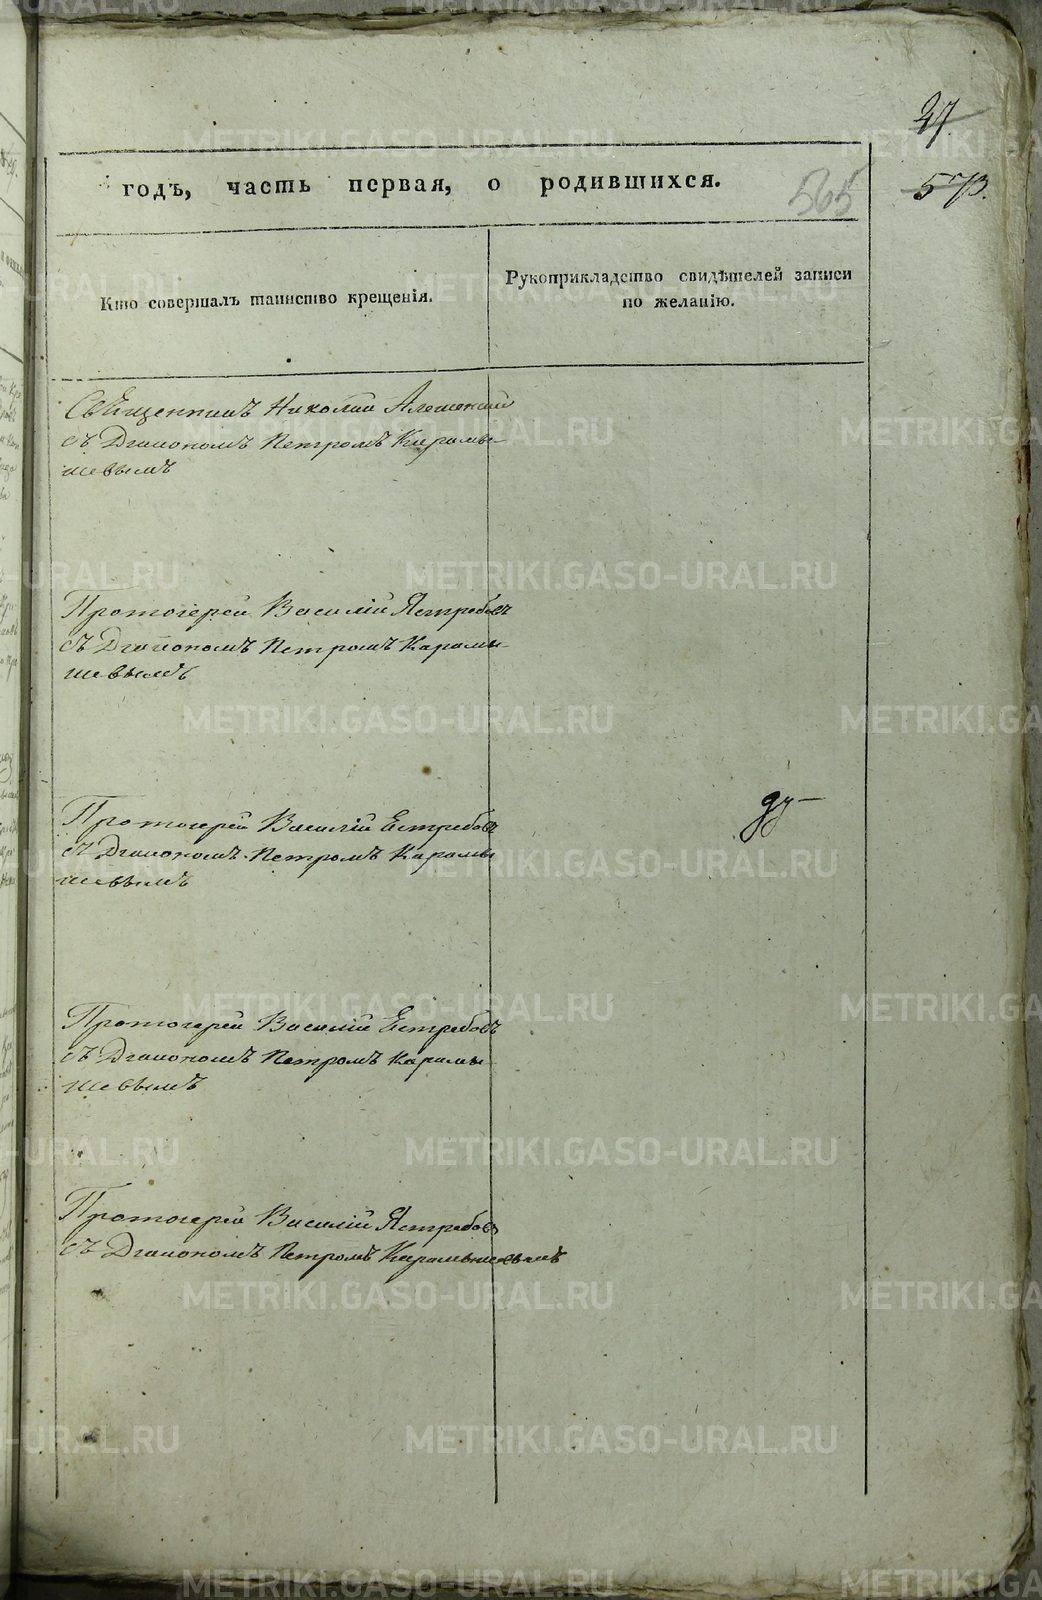 27
573.
565
годъ, часть первая, о родившихся.
Кто совершалъ таинство крещенія.
Рукоприкладство свидѣтелей записи
по желанію.
Священникъ Николай
съ Діакономъ Петромъ Карамы-
шевымъ
Протоіерей Василій Ястребовъ
съ Діакономъ Петромъ Карамы-
шевымъ
Протоіерей Василій Естребовъ
съ Діакономъ Петромъ Карамы
шевымъ
Протоіерей Василій Естребовъ
съ Діакономъ Петромъ Карамы
шевымъ
Протоіерей Василій Ястребовъ
съ Діакономъ Петромъ Карамышевымъ
METRIKI.GASO-URAL.RU